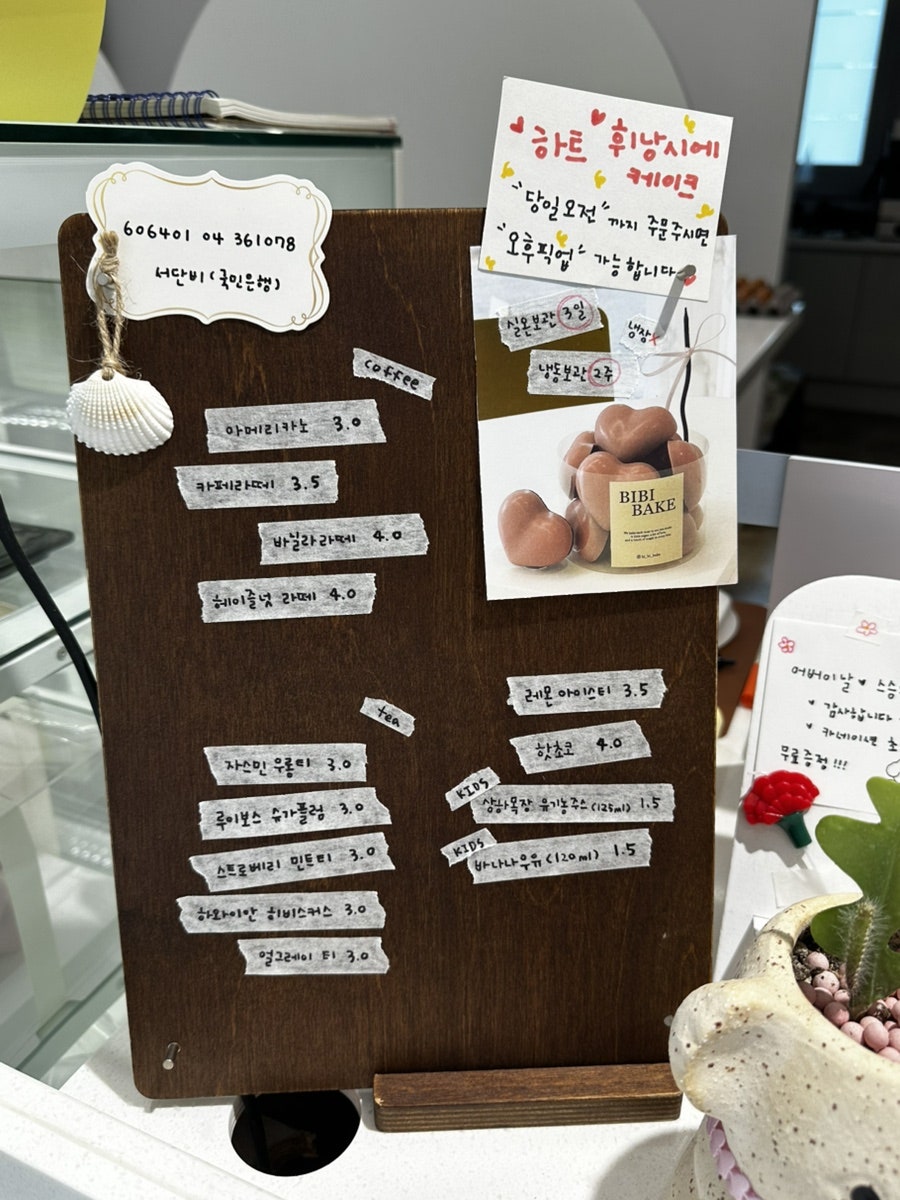 606401 04 361078
서단비(국민은행)
하트 휘낭시에
케이크
"당일오전"까지 주문주시면
"오후픽업" 가능합니다
실온보관 3일
냉장x
냉동보관 2주
BIBI
BAKE
coffee
아메리카노 3.0
카페라떼 3.5
바닐라라떼 4.0
헤이즐넛 라떼 4.0
tea
자스민 우롱티 3.0
루이보스 슈가플럼 3.0
스트로베리 민트티 3.0
하와이안 히비스커스 3.0
얼그레이 티 3.0
레몬아이스티 3.5
핫초코 4.0
KIDS
상하목장 유기농주스(125ml) 1.5
KIDS
바나나우유(120ml) 1.5
어버이날♥ 스승
감사합니다
♥ 카네이션 초
무료증정!!!